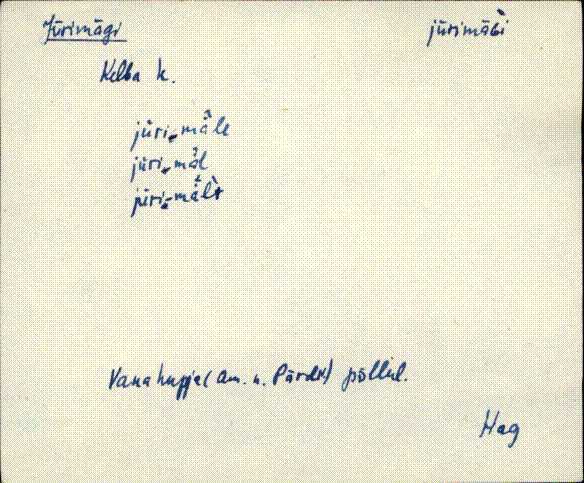 Jürimägi jürimä̀ɢi
Kelba k.
jüri-mäle
jüri-mäl
jüri-mält
Vanahupja (Am. n. Pärdi) põllul.
Hag